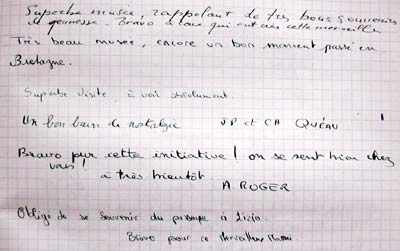 Superbe musée, rappelant de très bons souvenirs
de jeunesse. Bravo à ceux qui ont créé cette merveille
Très beau musée, encore un bon moment passé en
Bretagne.
Superbe visite, à voir absolument.
Un bon bain de nostalgie JP et CH QUÉAU
Bravo pour cette initiative ! on se sent bien chez
vous !
à très bientôt.
A. ROGER
Obligé de se souvenir du passage à Lizio
Bravo pour ce merveilleux